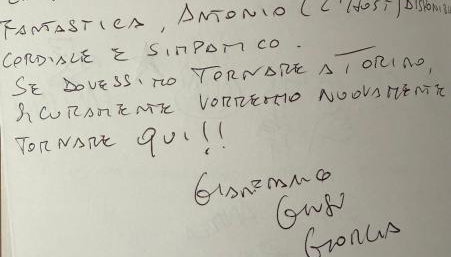 FANTASTICA, ANTONIO (L'HOST) DISPONIBI
CORDIALE E SIMPATICO.
SE DOVESSIMO TORNARE A TORINO,
SICURAMENTE VORREMMO NUOVAMENTE
TORNARE QUI!!
GIANFRANCO
GIUSY
GIORGIA